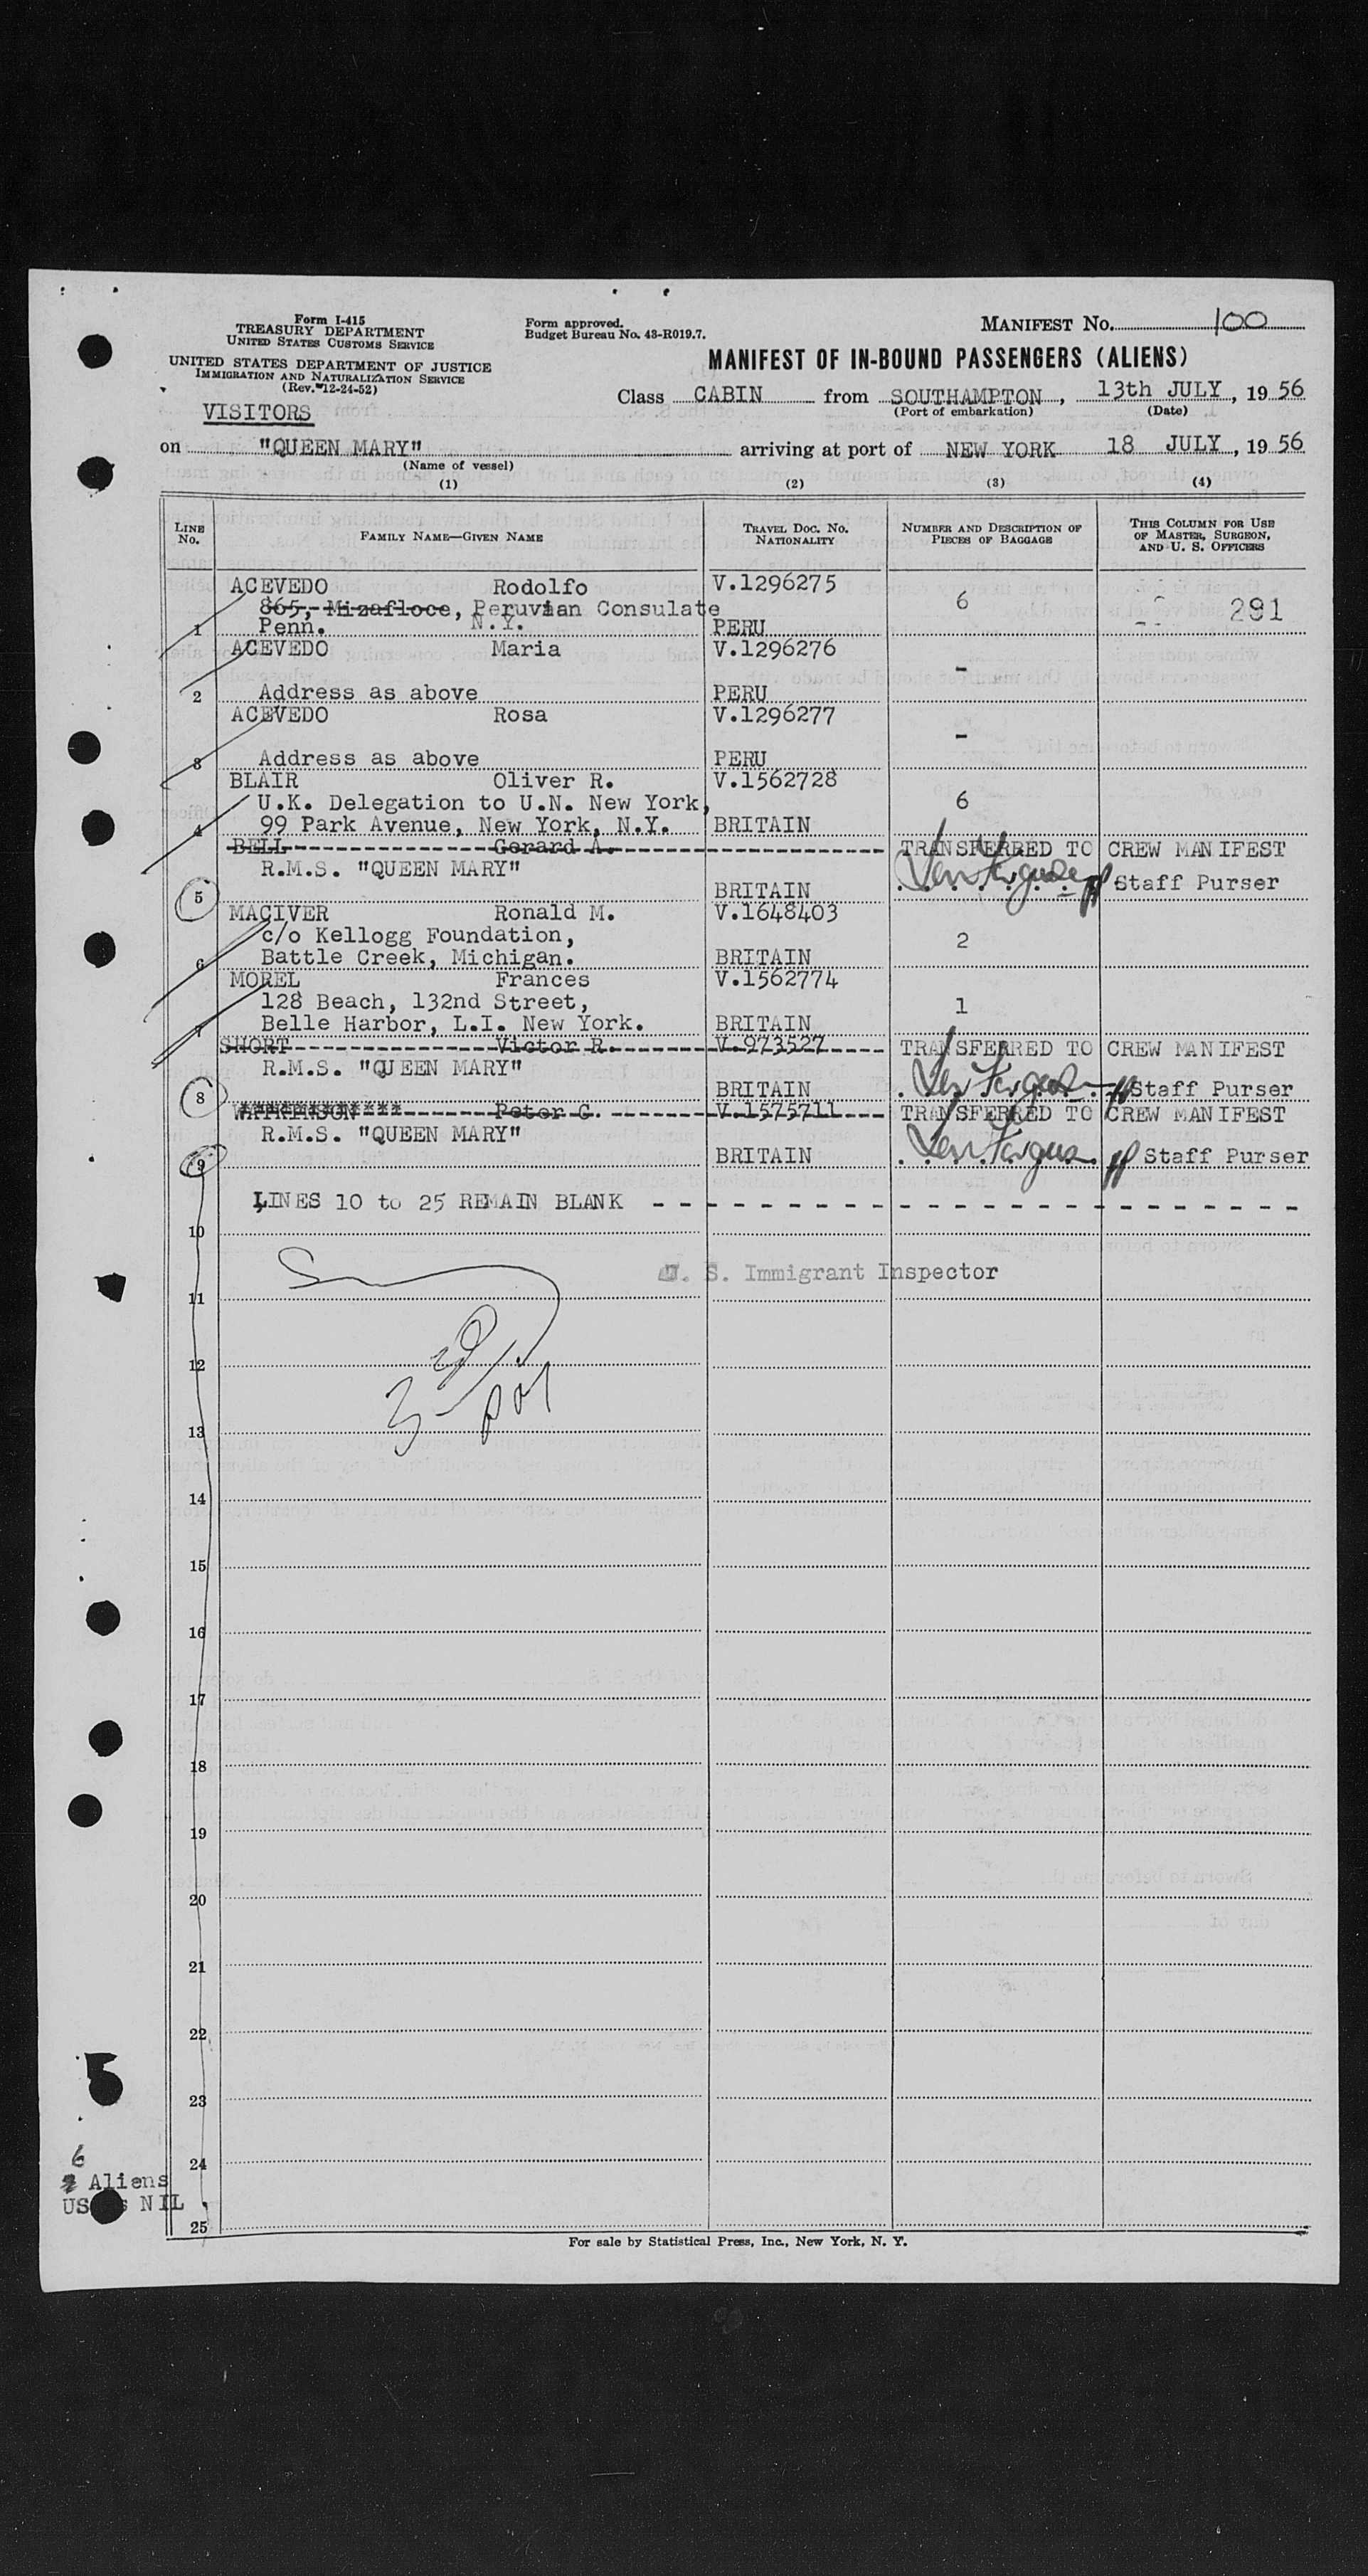 Form I-415
TREASURY DEPARTMENT
UNITED STATES CUSTOMS SERVICE
UNITED STATES DEPARTMENT OF JUSTICE
IMMIGRATION AND NATURALIZATION SERVICE
(Rev. 12-24-52)
Form approved.
Budget Bureau No. 43-R019.7.
MANIFEST No. 100
MANIFEST OF IN-BOUND PASSENGERS (ALIENS)
Class CABIN from SOUTHAMPTON, 13th JULY, 19 56
(Port of embarkation) (Date)
VISITORS
on "QUEEN MARY" arriving at port of NEW YORK 18 JULY, 19 56
(Name of vessel)
(1) (2) (3) (4)
LINE No. FAMILY NAME—GIVEN NAME TRAVEL DOC. No. NATIONALITY NUMBER AND DESCRIPTION OF PIECES OF BAGGAGE THIS COLUMN FOR USE OF MASTER, SURGEON, AND U. S. OFFICERS
ACEVEDO Rodolfo V.1296275
865, Mizafloce, Peruvian Consulate 6 291
1 Penn. N.Y. PERU
ACEVEDO Maria V.1296276
-
2 Address as above PERU
ACEVEDO Rosa V.1296277
-
3 Address as above PERU
BLAIR Oliver R. V.1562728
U.K. Delegation to U.N. New York, 6
4 99 Park Avenue, New York, N.Y. BRITAIN
BELL Gerard A. TRANSFERRED TO CREW MANIFEST
R.M.S. "QUEEN MARY" Staff Purser
5 BRITAIN
MACIVER Ronald M. V.1648403
c/o Kellogg Foundation, 2
6 Battle Creek, Michigan. BRITAIN
MOREL Frances V.1562774
128 Beach, 132nd Street, 1
7 Belle Harbor, L.I. New York. BRITAIN
SHORT Victor R. V.973527 TRANSFERRED TO CREW MANIFEST
R.M.S. "QUEEN MARY"
8 BRITAIN Staff Purser
Peter G. V.1575711 TRANSFERRED TO CREW MANIFEST
R.M.S. "QUEEN MARY"
9 BRITAIN Staff Purser
LINES 10 to 25 REMAIN BLANK - - - - - - - - - - - - - - - - - - - - - - - -
10
U. S. Immigrant Inspector
11
12
13
14
15
16
17
18
19
20
21
22
23
5
24
6
Aliens
NIL
25
For sale by Statistical Press, Inc., New York, N. Y.